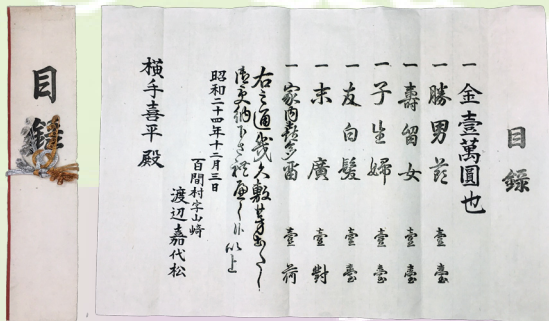 目録
一 金壹萬圓也
一 勝男莭 壹臺
一 壽留女 壹臺
一 子生婦 壹臺
一 友白髪 壹臺
一 末廣 壹對
一 家内喜多留 壹荷
右之通幾久敷芽出たく
以上
昭和二十四年十二月三日
百間村字山崎
渡辺嘉代松
横手喜平殿
目録